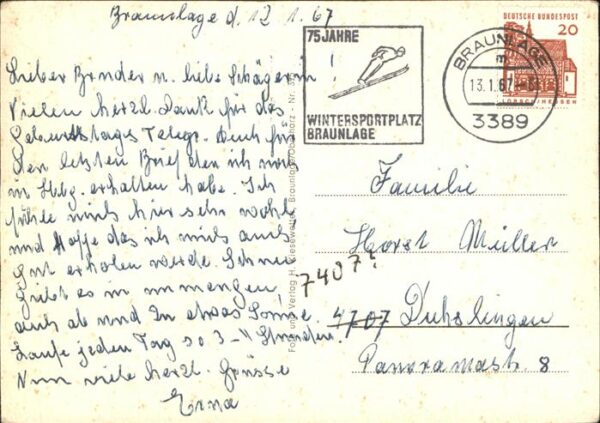 Braunlage d. 12 1. 67
Lieber Bruder u. liebe Schägerin!
Vielen herzl. Dank für das
Geburtstags Telegr. Auch für
den letzten Brief den ich noch
in Hbg. erhalten habe. Ich
fühle mich hier sehr wohl
und hoffe das ich mich auch
gut erholen werde. Schnee
giebt es in unmengen
auch ab und zu etwas Sonne.
Laufe jeden Tag so 3-4 Stunden.
Nun viele herzl. Grüsse
Erna
75 JAHRE
WINTERSPORTPLATZ
BRAUNLAGE
BRAUNLAGE
13.1.67
3389
DEUTSCHE BUNDESPOST
20
LORSCH/HESSEN
Foto und Verlag H. Braunlage/Oberharz - Nr.
Familie
Horst Müller
7407?
4707 Dußlingen
Panoramastr. 8